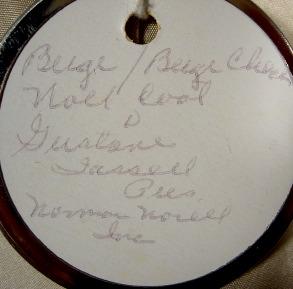 Beige / Beige Check
Noll Cool
D
Gustave
Tassell
Pres.
Norman Norell
Inc